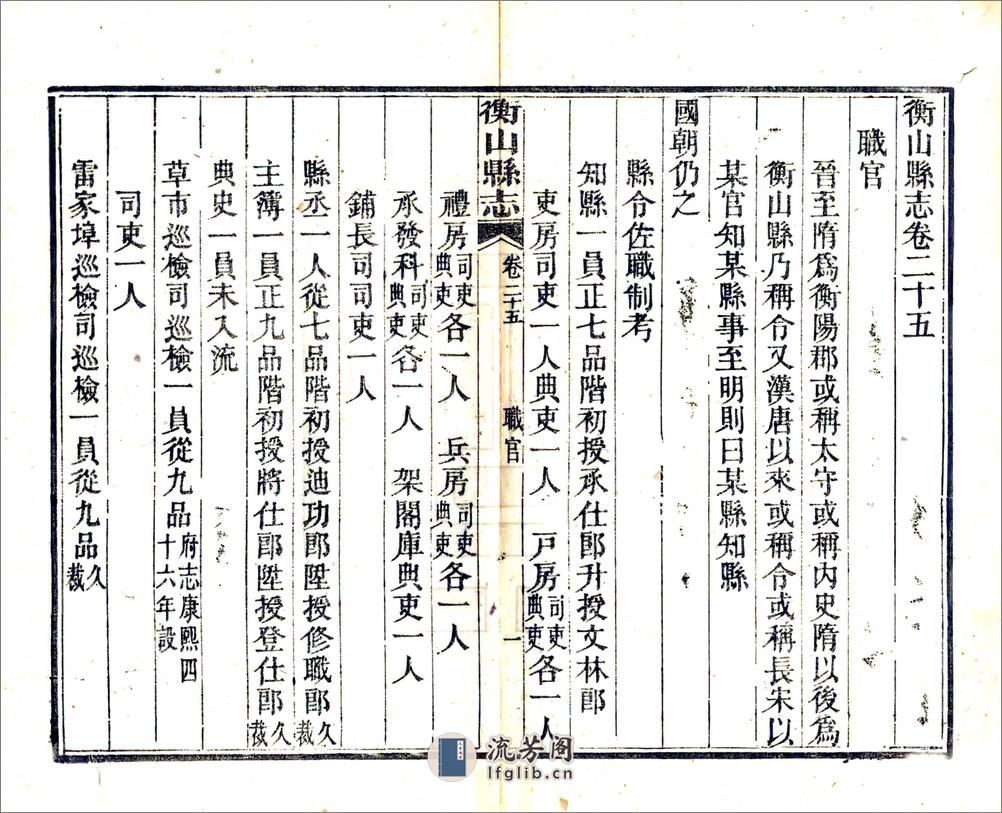 衡山縣志卷二十五
職官
晉至隋爲衡陽郡或稱太守或稱內史隋以後爲
衡山縣乃稱令又漢唐以來或稱令或稱長宋以
某官知某縣事至明則曰某縣知縣
國朝仍之
縣令佐職制考
知縣一員正七品階初授承仕郎升授文林郎
吏房司吏一人典吏一人 戸房司吏典吏各一人
衡山縣志 卷二十五 職官 一
禮房司吏典吏各一人 兵房司吏典吏各一人
承發科司吏典吏各一人 架閣庫典吏一人
鋪長司司吏一人
縣丞一人從七品階初授迪功郎陞授修職郎久裁
主簿一員正九品階初授將仕郎陞授登仕郎久裁
典史一員未入流
草市巡檢司巡檢一員從九品府志康熙四十六年設
司吏一人
雷家埠巡檢司巡檢一員從九品久裁
流芳阁
lfglib.cn